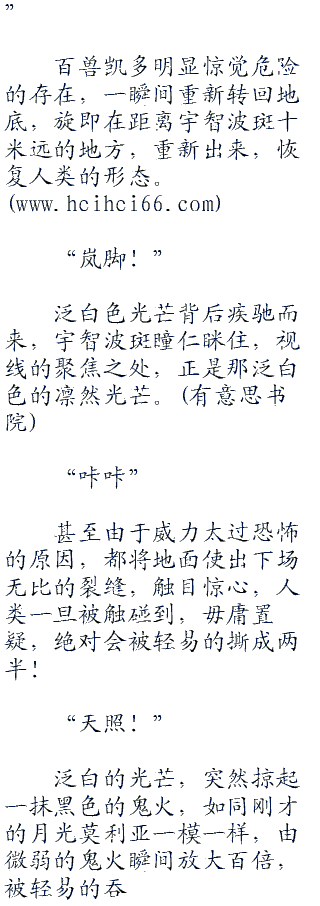 ”
百兽凯多明显惊觉危险
的存在，一瞬间重新转回地
底，旋即在距离宇智波斑十
米远的地方，重新出来，恢
复人类的形态。
(www.hcihci66.com)
“岚脚！”
泛白色光芒背后疾驰而
来，宇智波斑瞳仁眯住，视
线的聚焦之处，正是那泛白
色的凛然光芒。(有意思书
院)
“咔咔”
甚至由于威力太过恐怖
的原因，都将地面使出下场
无比的裂缝，触目惊心，人
类一旦被触碰到，毋庸置
疑，绝对会被轻易的撕成两
半！
“天照！”
泛白的光芒，突然掠起
一抹黑色的鬼火，如同刚才
的月光莫利亚一模一样，由
微弱的鬼火瞬间放大百倍，
被轻易的吞